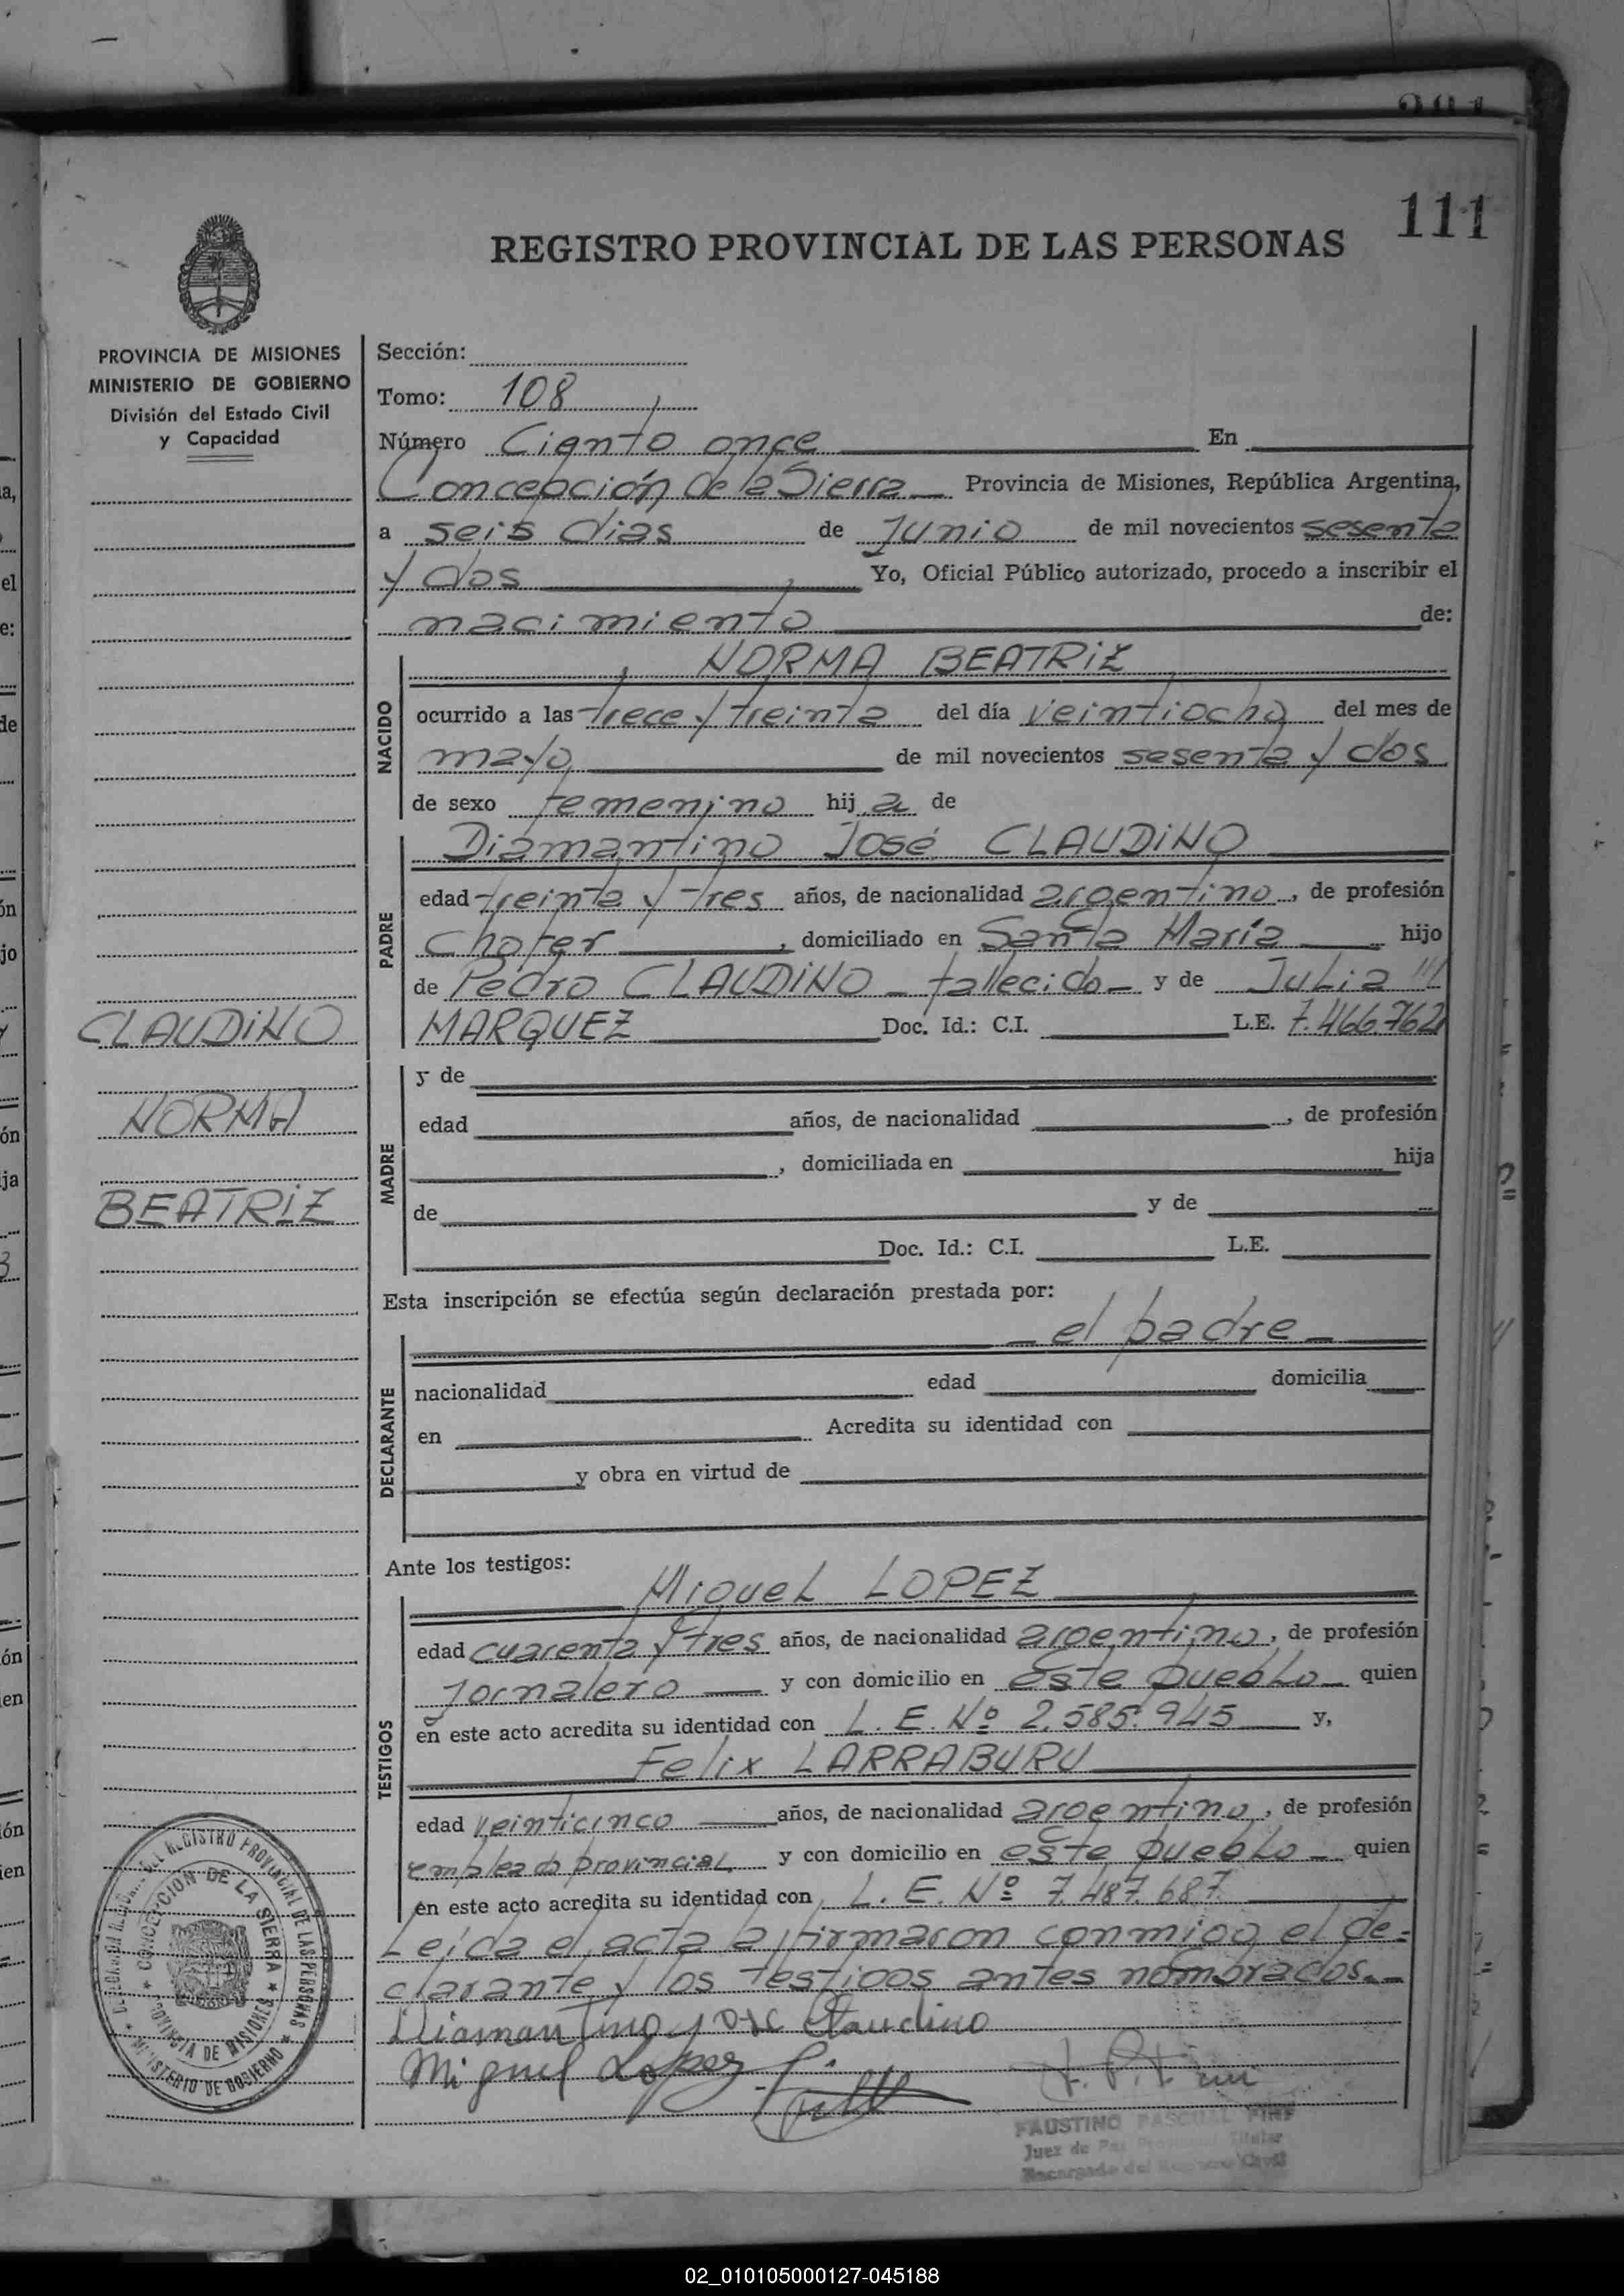 111
REGISTRO PROVINCIAL DE LAS PERSONAS
PROVINCIA DE MISIONES
MINISTERIO DE GOBIERNO
División del Estado Civil
y Capacidad
CLAUDINO
NORMA
BEATRIZ
Sección:
Tomo: 108
Número Ciento once En
Concepción de la Sierra Provincia de Misiones, República Argentina,
a seis dias de Junio de mil novecientos sesenta
y dos Yo, Oficial Público autorizado, procedo a inscribir el
nacimiento de:
NACIDO
NORMA BEATRIZ
ocurrido a las trece y treinta del día veintiocho del mes de
mayo de mil novecientos sesenta y dos
de sexo femenino hija de
PADRE
Diamantino José CLAUDINO
edad treinta y tres años, de nacionalidad argentino, de profesión
Chofer, domiciliado en Santa María hijo
de Pedro CLAUDINO - fallecido - y de Julia
MARQUEZ Doc. Id.: C.I. L.E. 7.466.762
MADRE
y de
edad años, de nacionalidad , de profesión
, domiciliada en hija
de y de
Doc. Id.: C.I. L.E.
Esta inscripción se efectúa según declaración prestada por:
- el padre -
DECLARANTE
nacionalidad edad domicilia
en Acredita su identidad con
y obra en virtud de
Ante los testigos:
TESTIGOS
Miguel LOPEZ
edad cuarenta y tres años, de nacionalidad argentino, de profesión
Jornalero y con domicilio en este pueblo quien
en este acto acredita su identidad con L. E. Nº 2.585.945 y,
Felix LARRABURU
edad veinticinco años, de nacionalidad argentino, de profesión
empleado provincial y con domicilio en este pueblo quien
en este acto acredita su identidad con L. E. Nº 7.487.687
Leída el acta la firmaron conmigo el de-
clarante y los testigos antes nombrados.-
Diamantino Jose Claudino
Miguel Lopez
FAUSTINO PASCUAL
Juez de Paz Titular
Encargado del Registro Civil
REGISTRO PROVINCIAL DE LAS PERSONAS
CONCEPCION DE LA SIERRA
PROVINCIA DE MISIONES
MINISTERIO DE GOBIERNO
02_010105000127-045188